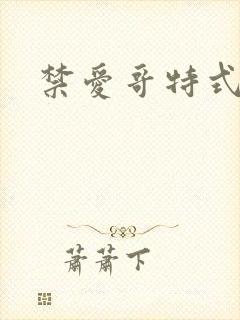 禁愛哥特式
蕭蕭下